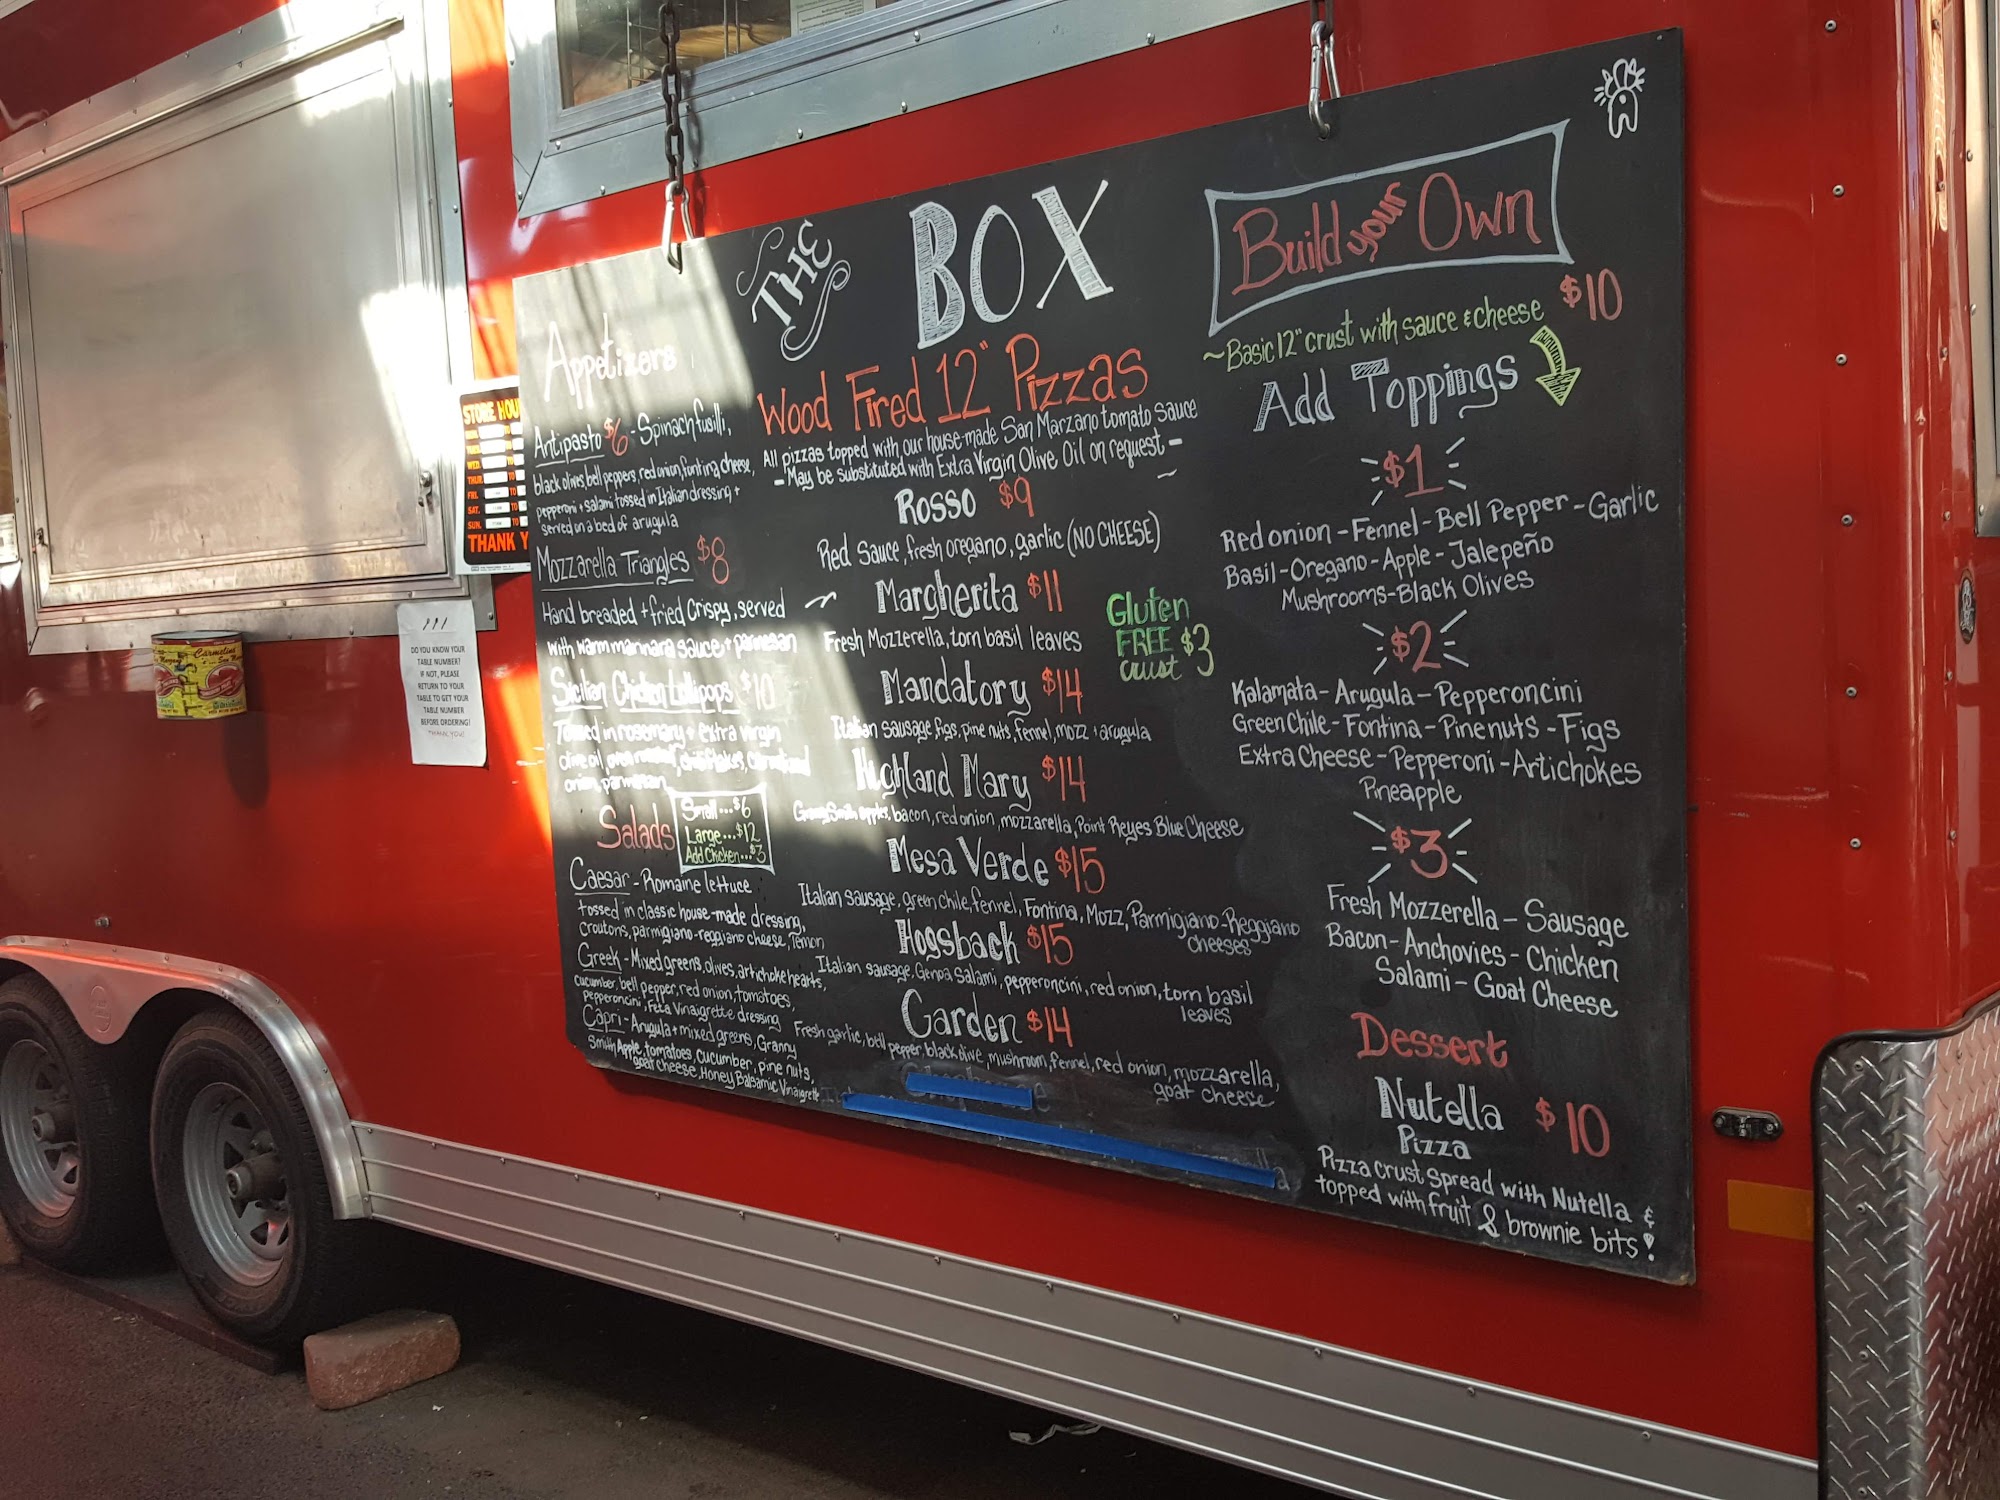 THE BOX
Wood Fired 12" Pizzas
All pizzas topped with our house-made San Marzano tomato sauce
- May be substituted with Extra Virgin Olive Oil on request -
Rosso $9
Red Sauce, fresh oregano, garlic (NO CHEESE)
Margherita $11
Fresh Mozzerella, torn basil leaves
Gluten
FREE $3
crust
Mandatory $14
Italian sausage, figs, pine nuts, fennel, mozz + arugula
Highland Mary $14
Granny Smith apples, bacon, red onion, mozzarella, Point Reyes Blue Cheese
Mesa Verde $15
Italian sausage, green chile, fennel, Fontina, Mozz, Parmigiano-Reggiano
cheeses
Hogsback $15
Italian sausage, Genoa Salami, pepperoncini, red onion, torn basil
leaves
Garden $14
Fresh garlic, bell pepper, black olive, mushroom, fennel, red onion, mozzarella,
goat cheese
Appetizers
Antipasto $6 - Spinach fusilli,
black olives, bell peppers, red onion, fontina cheese,
pepperoni + salami tossed in Italian dressing +
served on a bed of arugula
Mozzarella Triangles $8
Hand breaded + fried crispy, served
with warm marinara sauce + parmesan
Sicilian Chicken Lollipops $10
Tossed in rosemary + extra virgin
olive oil, oven roasted, chili flakes, caramelized
onion, parmesan
Salads
Small...$6
Large...$12
Add Chicken...$3
Caesar - Romaine lettuce
tossed in classic house-made dressing,
croutons, parmigiano-reggiano cheese, lemon
Greek - Mixed greens, olives, artichoke hearts,
cucumber, bell pepper, red onion, tomatoes,
Pepperoncini, Feta Vinaigrette dressing
Capri - Arugula + mixed greens, Granny
Smith Apple, tomatoes, cucumber, pine nuts,
goat cheese, Honey Balsamic Vinaigrette
Build your Own
~Basic 12" crust with sauce & cheese $10
Add Toppings
$1
Red onion - Fennel - Bell Pepper - Garlic
Basil - Oregano - Apple - Jalepeño
Mushrooms - Black Olives
$2
Kalamata - Arugula - Pepperoncini
Green Chile - Fontina - Pinenuts - Figs
Extra Cheese - Pepperoni - Artichokes
Pineapple
$3
Fresh Mozzerella - Sausage
Bacon - Anchovies - Chicken
Salami - Goat Cheese
Dessert
Nutella $10
Pizza
Pizza crust spread with Nutella &
topped with fruit & brownie bits!
STORE HOU
WED.
THUR.
FRI.
SAT.
SUN.
TO
THANK Y
DO YOU KNOW YOUR
TABLE NUMBER?
IF NOT, PLEASE
RETURN TO YOUR
TABLE TO GET YOUR
TABLE NUMBER
BEFORE ORDERING!
THANK YOU!
Carmelina